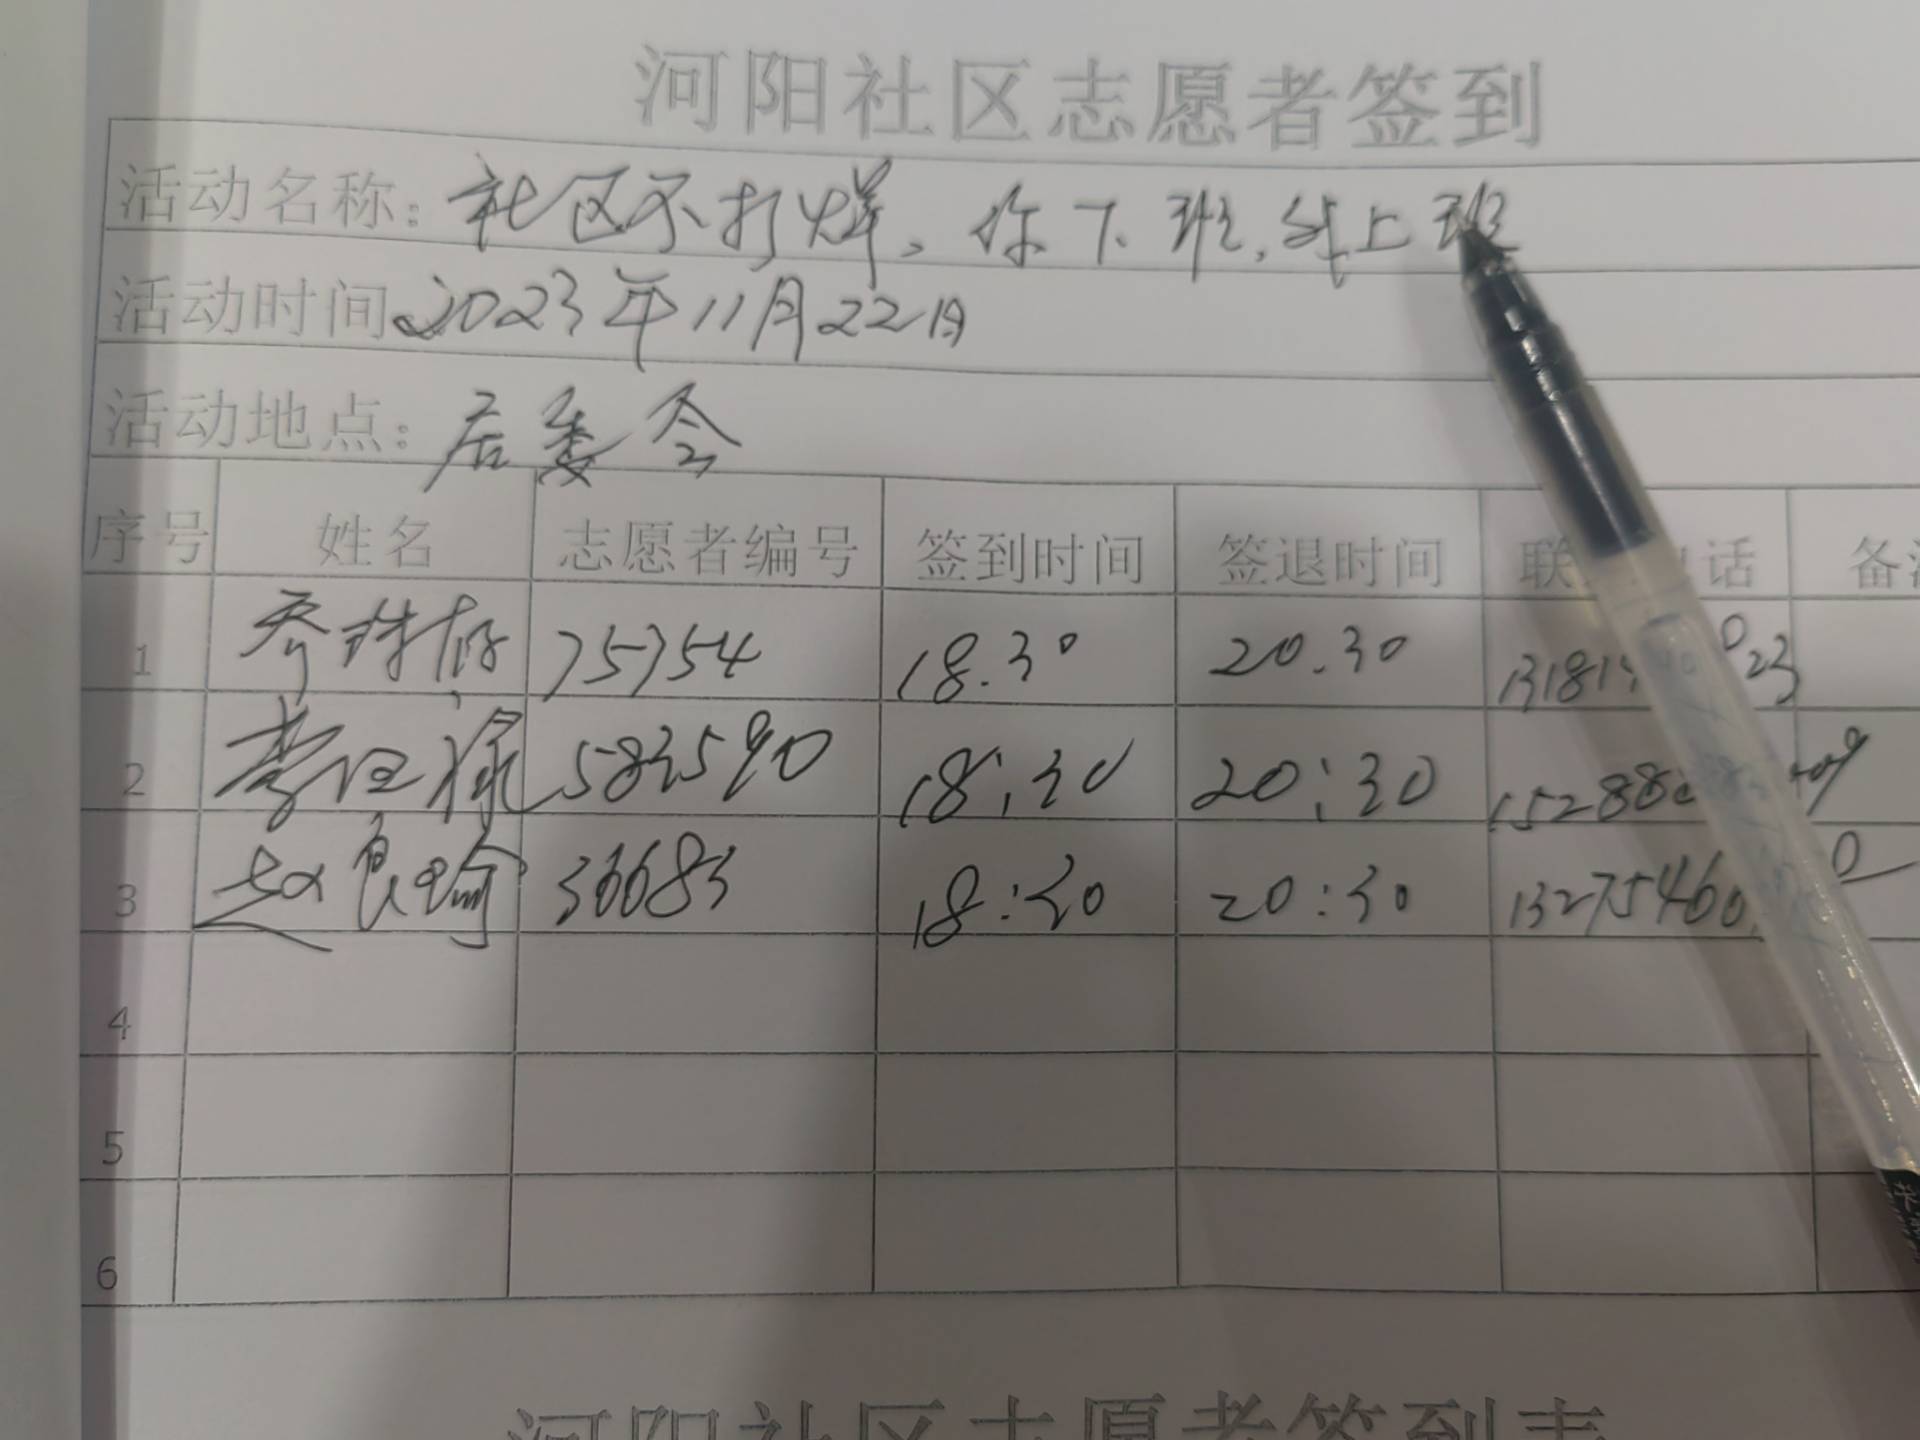 河阳社区志愿者签到
活动名称: 社区不打烊, 你下班, 我上班
活动时间 2023年11月22日
活动地点: 居委会
序号 姓名 志愿者编号 签到时间 签退时间 联 话 备
1 乔 75754 18.30 20.30
2 李 禄 583590 18:30 20:30
3 赵良瑜 36683 18:30 20:30
4
5
6
河阳社区志愿者签到表